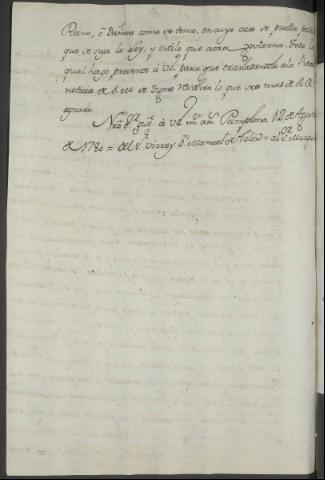 Reino, ò dañara como se teme, en cuyo caso se pueda pedir
que se siga la Ley, y estilo que aora govierna. Todo lo
qual hago presente à V.S. para que trasladandolo ala Real
noticia de S. M. se digne resolver lo que sea mas de su R.
agrado.
Nrõ S.r gue à V.S. m.s a.s Pamplona 12 de Agosto
de 1780 = del S. Virrey D.n Manuel de Azlor = al S.r Muzquiz